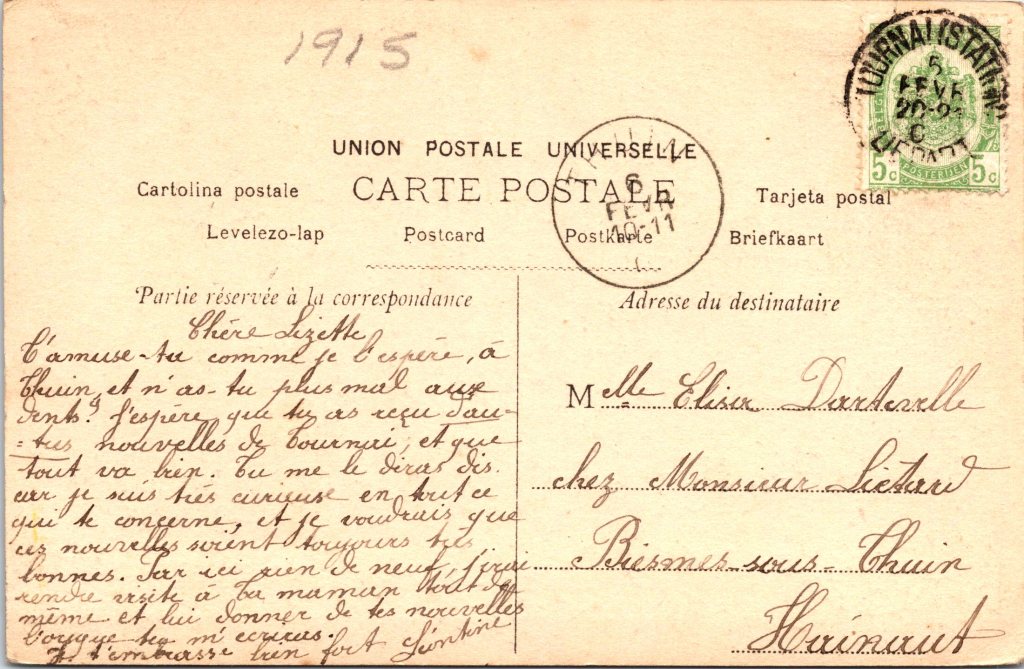 1915
TOURNAI (STATION)
5
FEVR
20-21
DEPART
5c POSTERIJEN 5c
UNION POSTALE UNIVERSELLE
6
FEVR
10-11
Cartolina postale CARTE POSTALE Tarjeta postal
Levelezo-lap Postcard Postkarte Briefkaart
Partie réservée à la correspondance
Adresse du destinataire
Chère Lizette
T'amuse-tu comme je l'espère, à
Thuin, et n'as-tu plus mal aux
dents? J'espère que tu as reçu d'au-
-tres nouvelles de Tournai, et que
tout va bien. Tu me le diras dis.
car je suis très curieuse en tout ce
qui te concerne, et je voudrais que
ces nouvelles soient toujours très
bonnes. Par ici rien de neuf, j'irai
rendre visite à ta maman tout de
même et lui donner de tes nouvelles
lorsque tu m'écriras.
Je t'embrasse bien fort Léontine
Melle Elisa Dartevelle
chez Monsieur Liétard
Biesmes-sous-Thuin
Hainaut